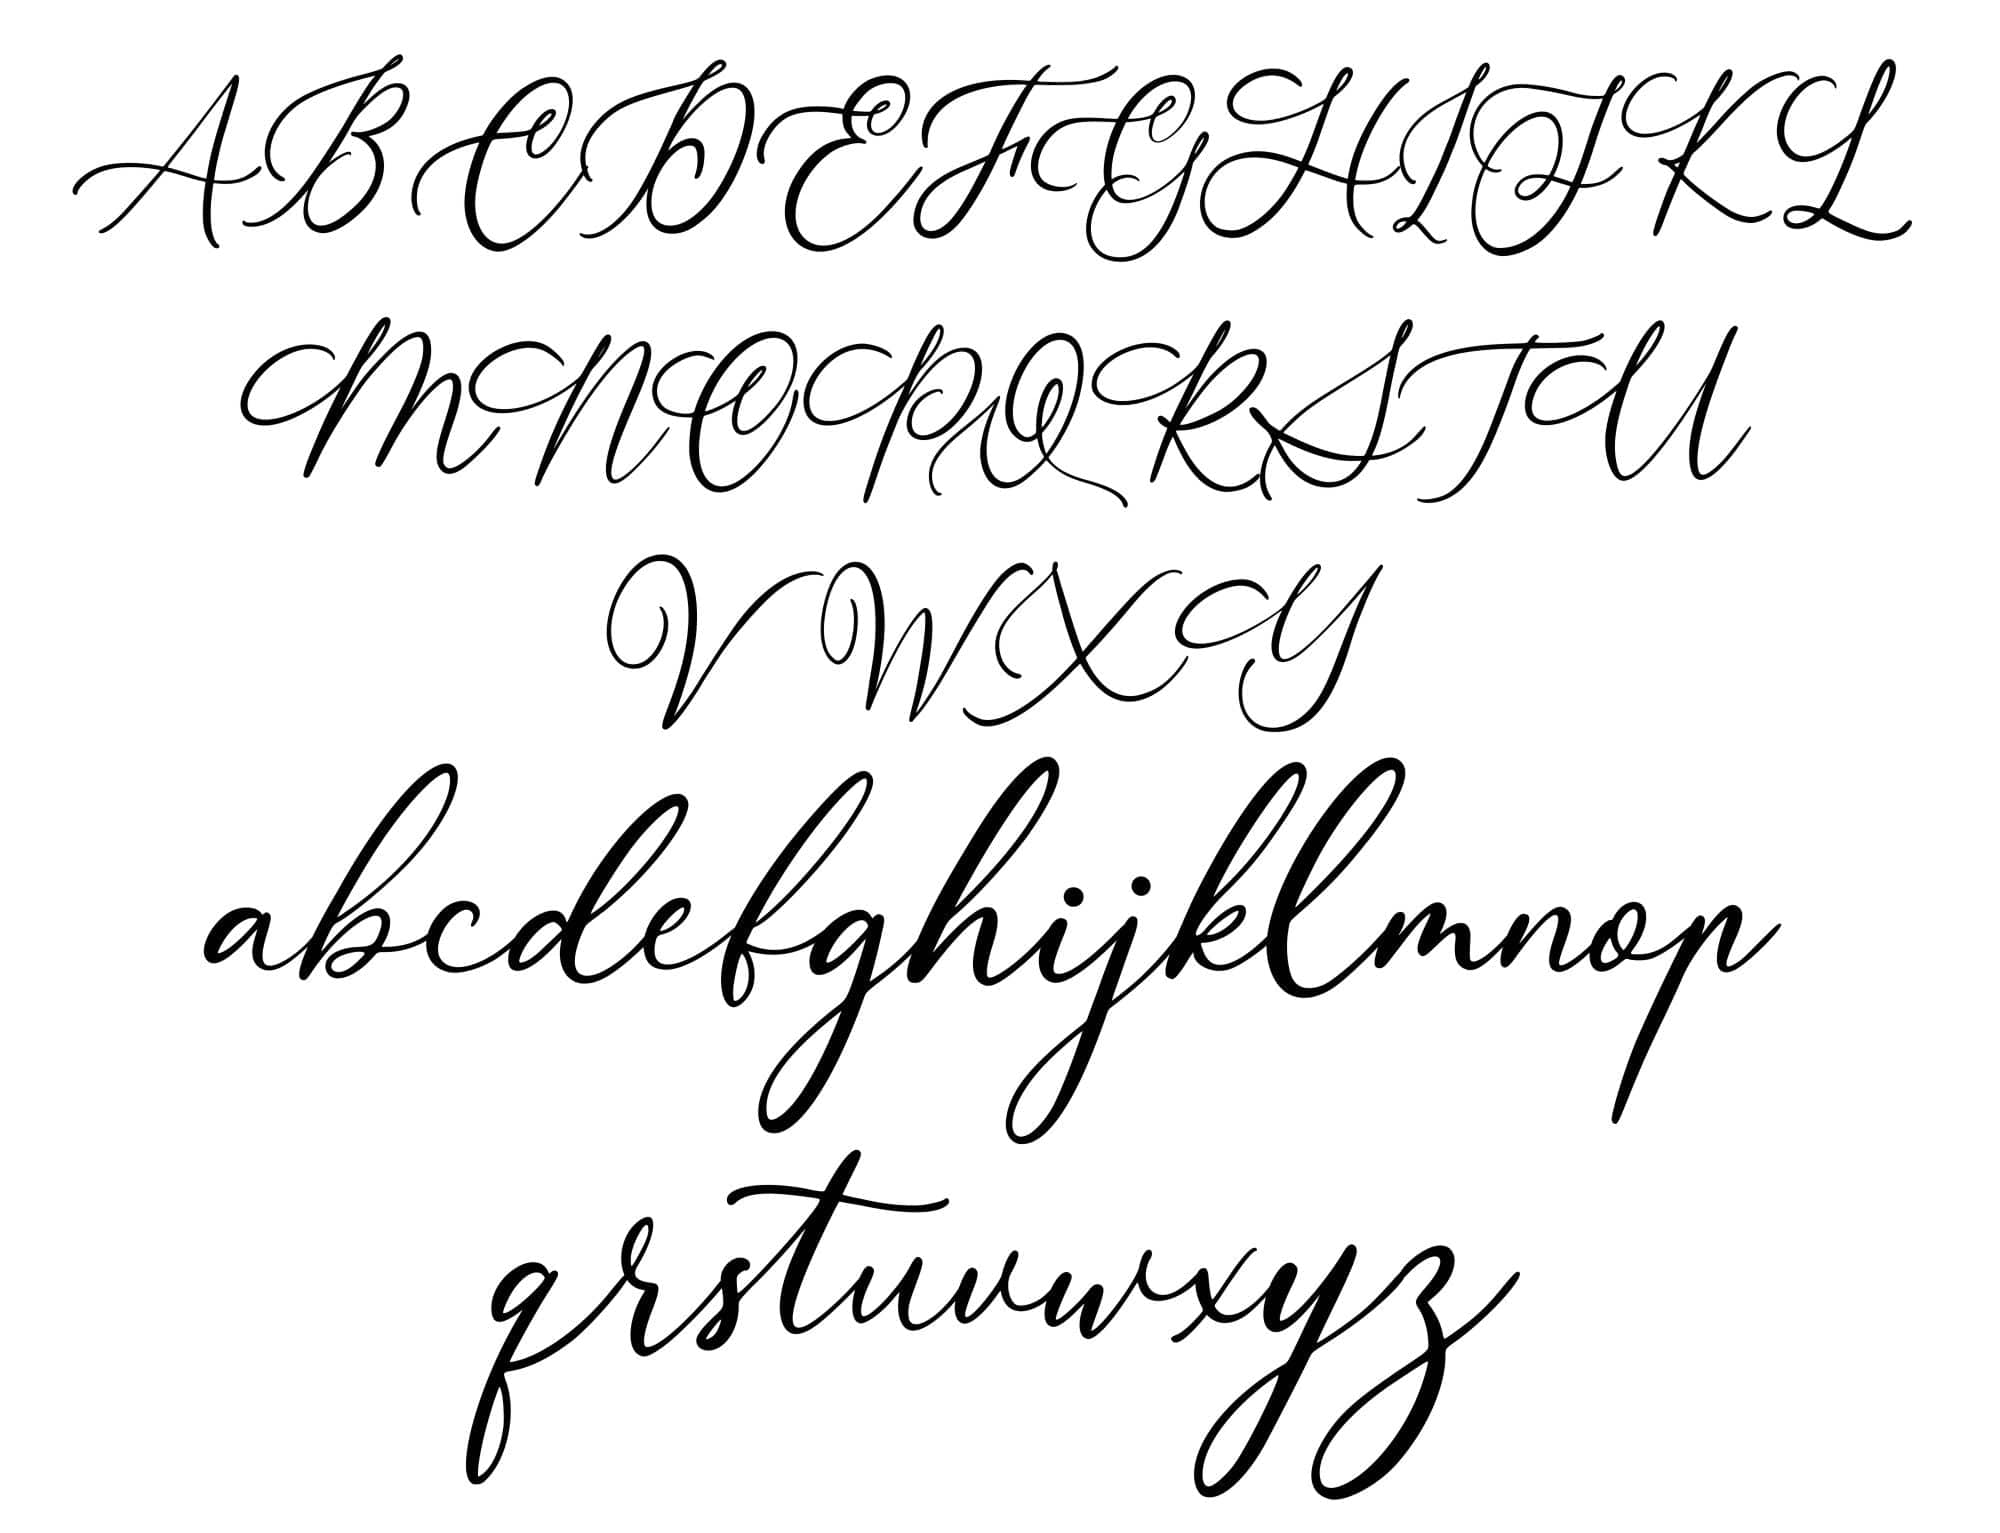 ABCDEFGHIJKL
MNOPQRSTU
VWXY
abcdefghijklmnop
qrstuvwxyz